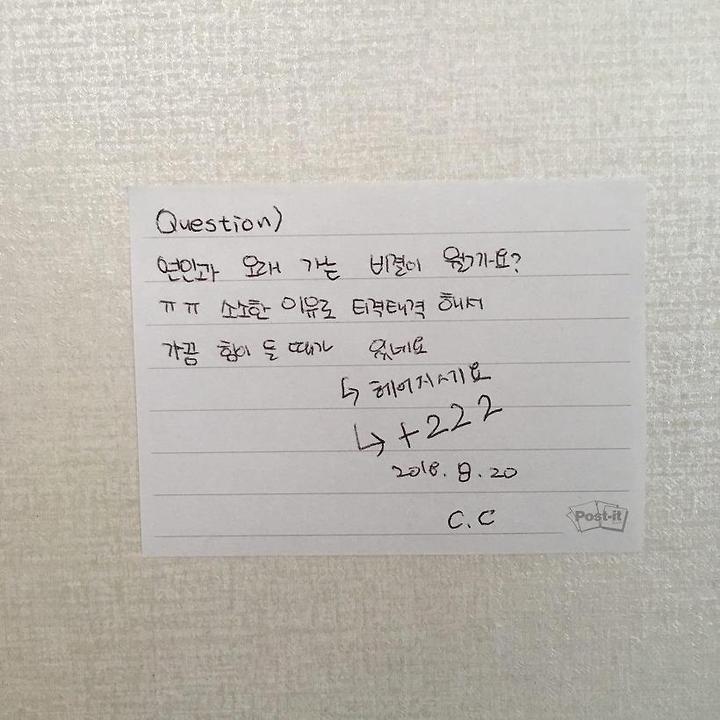 Question)
연인과 오래 가는 비결이 뭘까요?
ㅠㅠ 소소한 이유로 티격태격 해서
가끔 힘이 들 때가 있네요
↳ 헤어지시기요
↳ +222
2018. 8. 20
C.C
Post-it